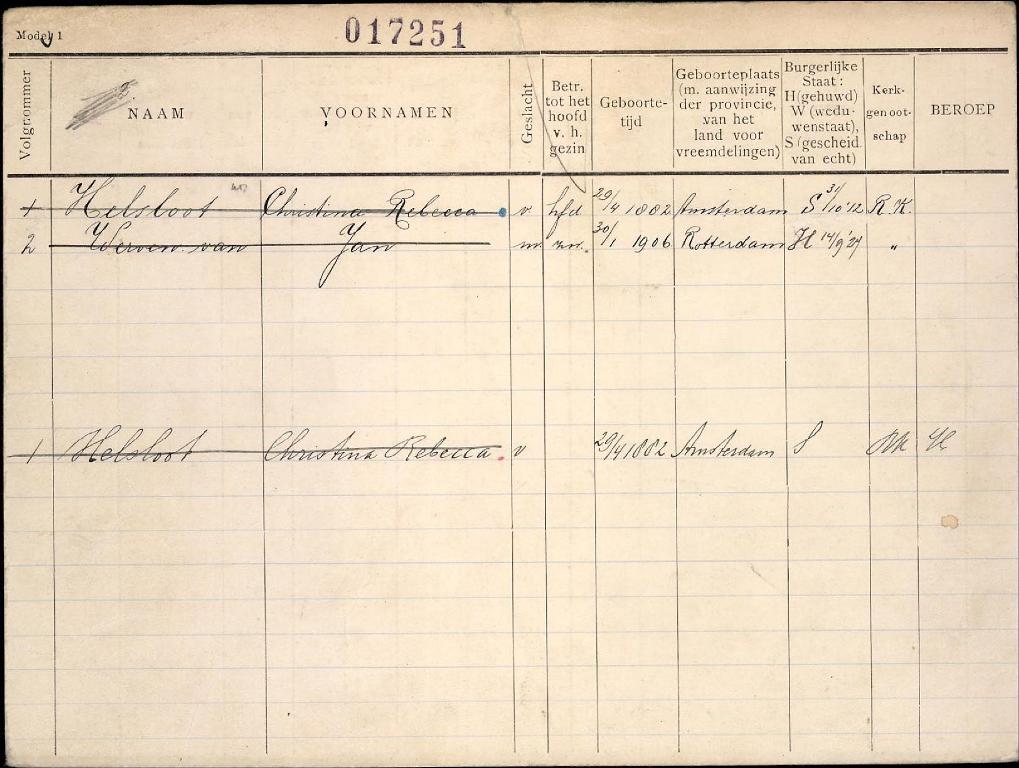 Model 1
017251
Volgnommer
NAAM
VOORNAMEN
Geslacht
Betr. tot het hoofd v. h. gezin
Geboorte-tijd
Geboorteplaats (m. aanwijzing der provincie, van het land voor vreemdelingen)
Burgerlijke Staat: H (gehuwd) W (wedu-wenstaat), S (gescheid. van echt)
Kerk-genoot-schap
BEROEP
1 Helsloot Christina Rebecca v hfd 29/4 1882 Amsterdam S 31/10 '12 R.K.
2 Werven van Jan m zn. 30/1 1906 Rotterdam H 14/9 '27 "
1 Helsloot Christina Rebecca. v 29/4 1882 Amsterdam S RK